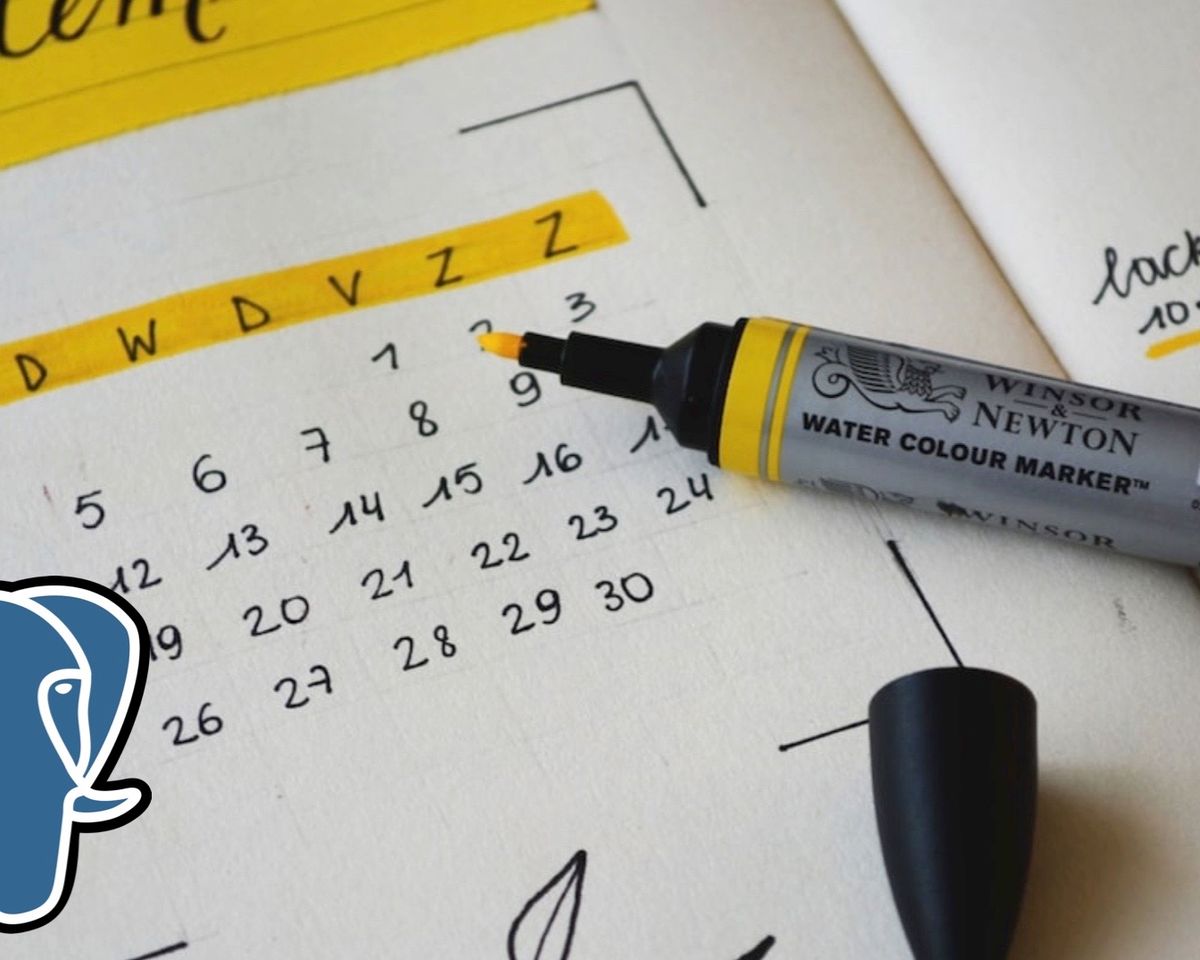 D W D V Z Z
1 2 3
5 6 7 8 9
12 13 14 15 16
19 20 21 22 23 24
26 27 28 29 30
10
WINSOR
&
NEWTON
WATER COLOUR MARKER™
WINSOR